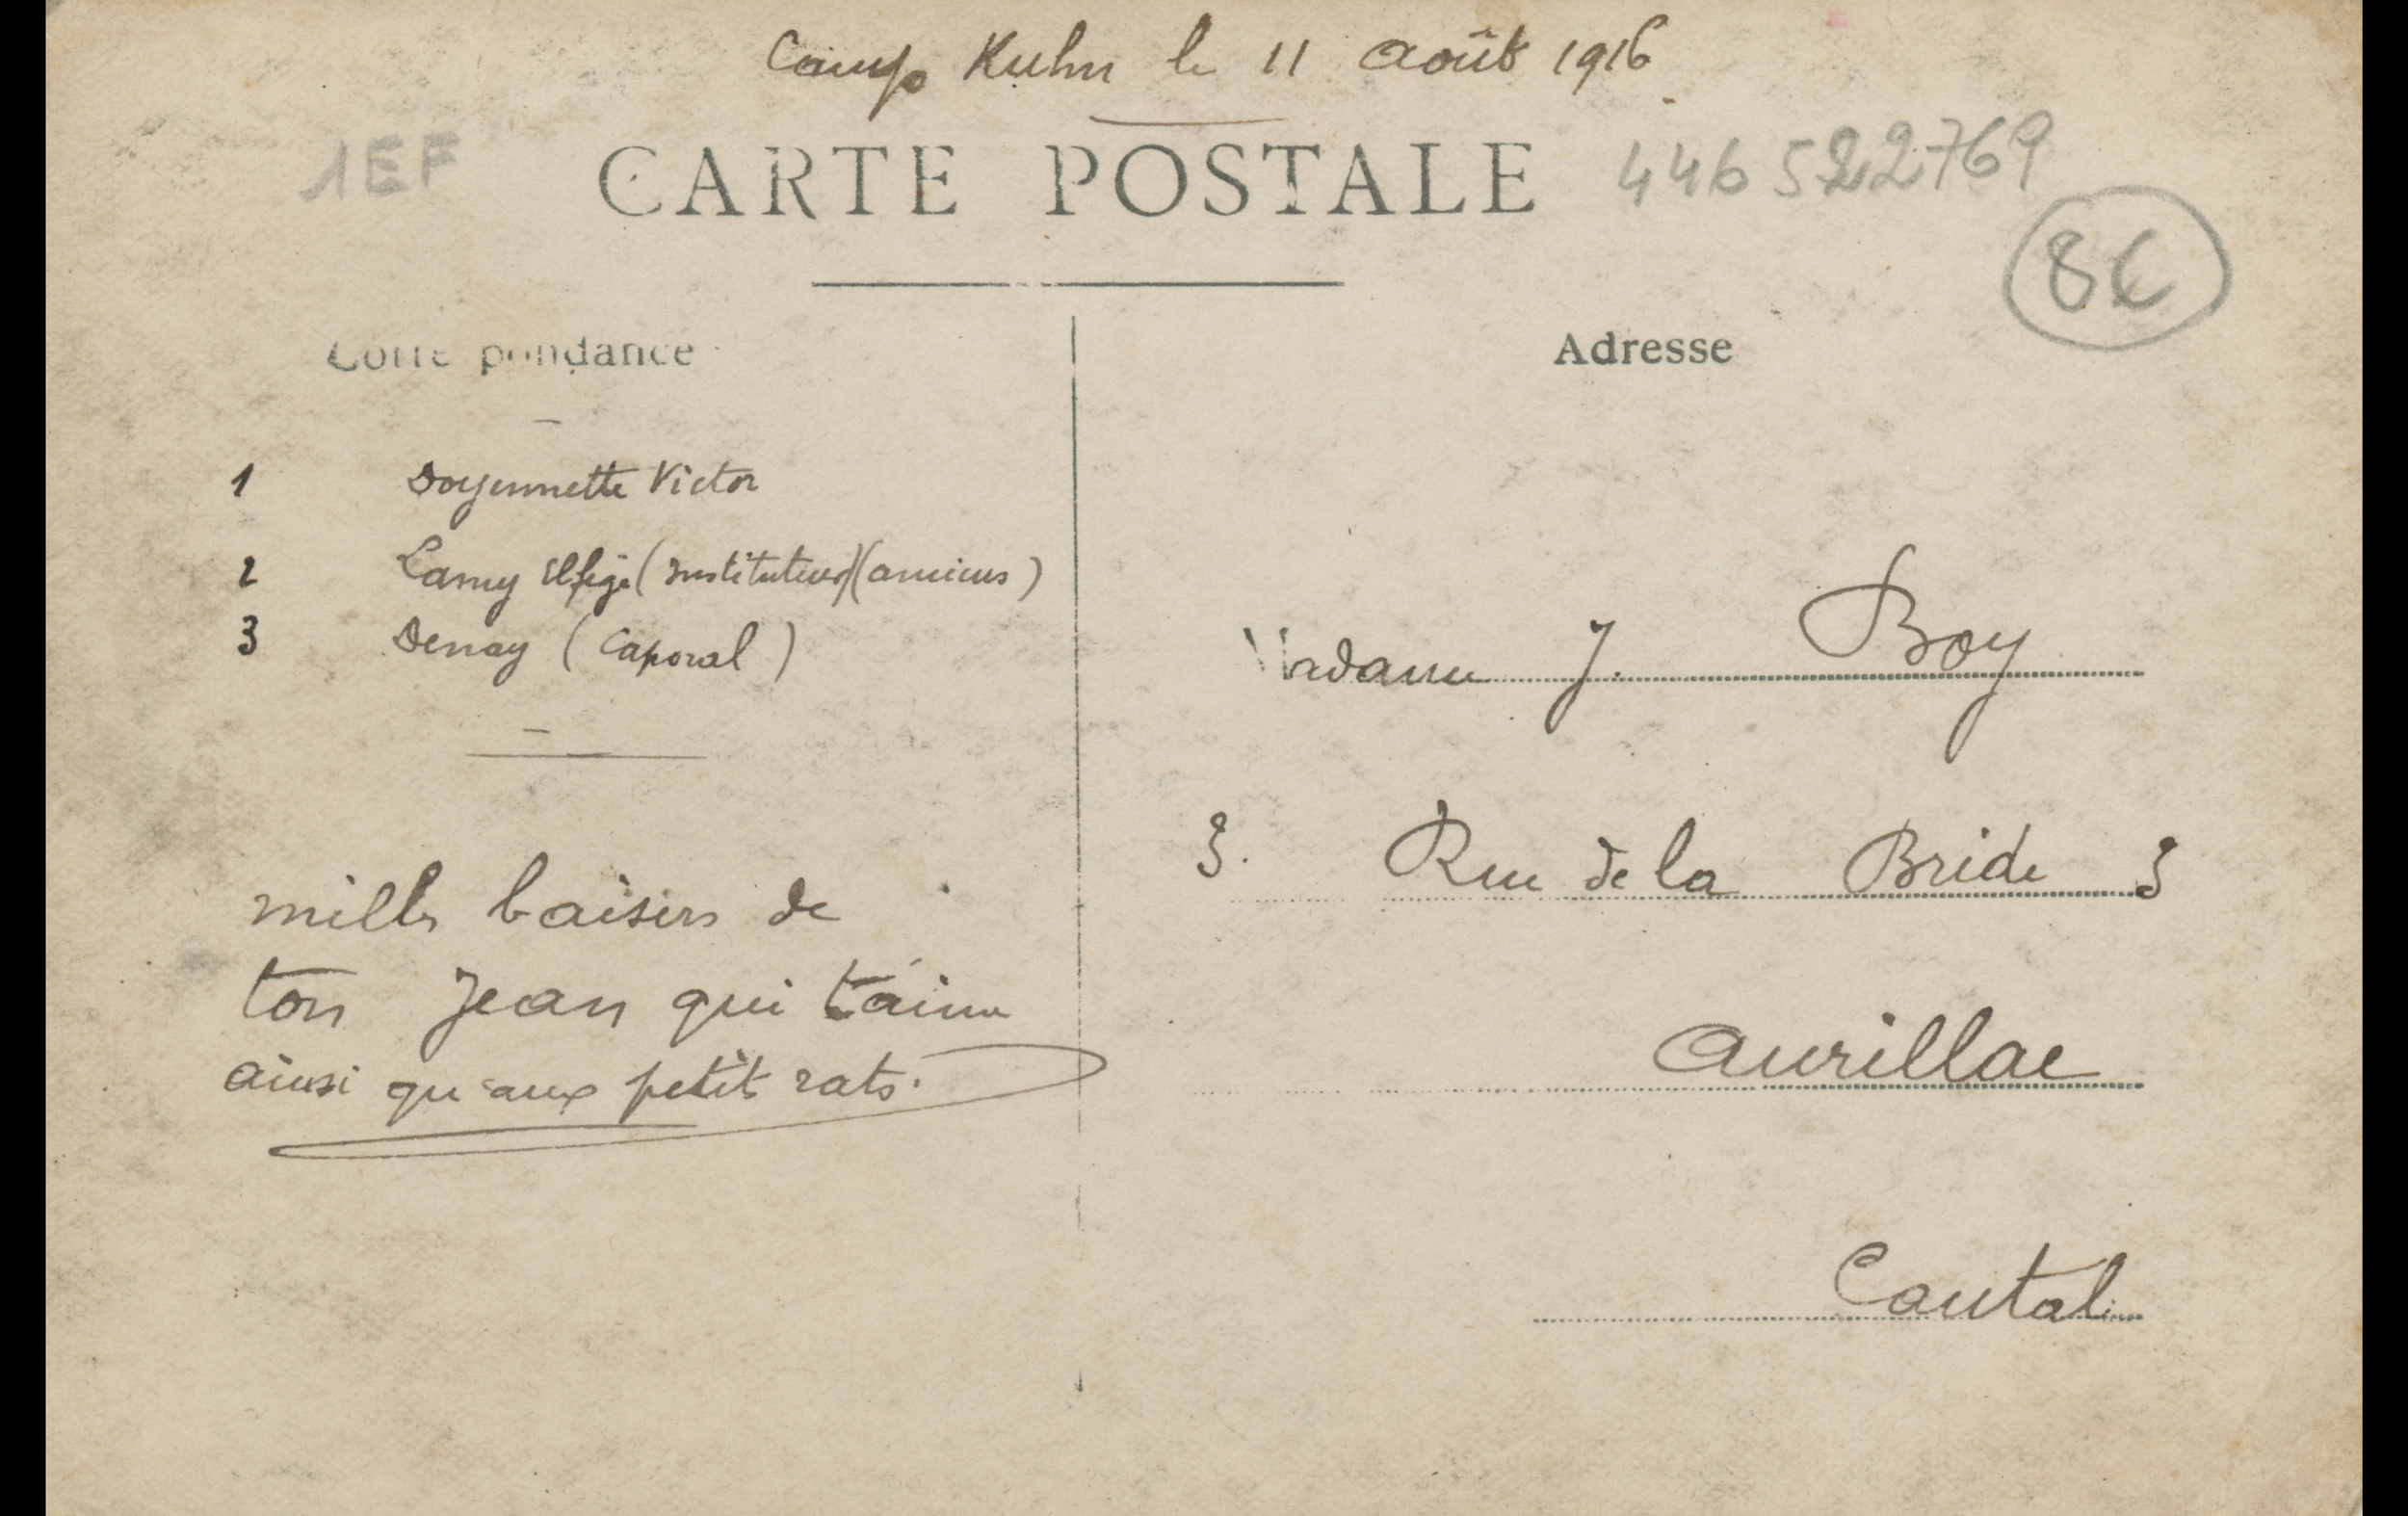 Camp Kuhn le 11 Août 1916
1EF
CARTE POSTALE
446 522769
8€
Correspondance
Adresse
1 Doyennette Victor
2 Lamy Elfige (Instituteur) (amicus)
3 Denay (Caporal)
Madame J. Boy
3. Rue de la Bride 3
mille baisers de
ton Jean qui t'aime
ainsi qu'aux petits rats.
Aurillac
Cantal